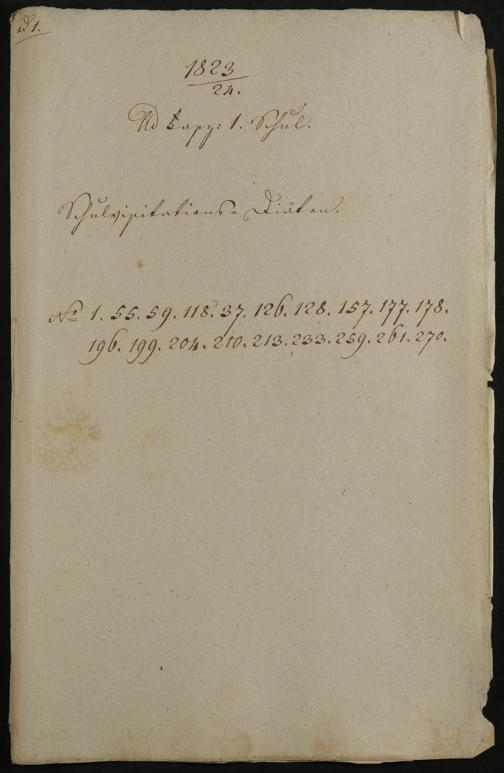 ad 1.
1823
24.
Ad Capz: 1. Schul.
Schulvisitations-Diäten.
No 1. 55. 59. 118. 37. 126. 128. 157. 177. 178.
196. 199. 204. 210. 213. 233. 259. 261. 270.